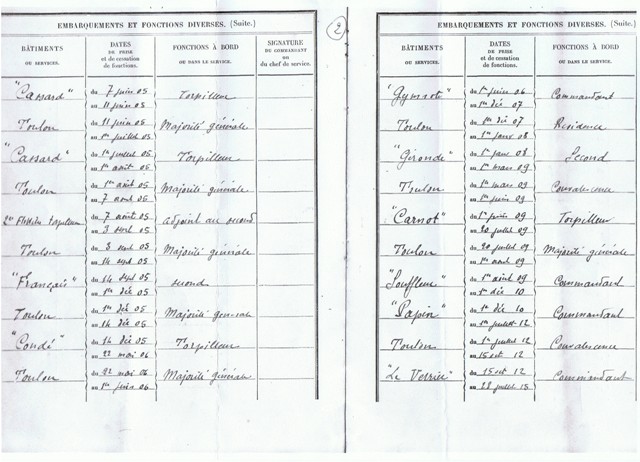 EMBARQUEMENTS ET FONCTIONS DIVERSES. (Suite.)
BÂTIMENTS
OU SERVICES.
DATES
DE PRISE
et de cessation
de fonctions.
FONCTIONS À BORD
OU DANS LE SERVICE.
SIGNATURE
DU COMMANDANT
ou
du chef de service.
"Cassard"
du 7 juin 05
au 11 juin 05
Torpilleur
Toulon
du 11 juin 05
au 1er juillet 05
Majorité générale
"Cassard"
du 1er juillet 05
au 1er août 05
Torpilleur
Toulon
du 1er août 05
au 7 août 05
Majorité générale
2e flottille torpilleurs
du 7 août 05
au 3 sept 05
adjoint au second
Toulon
du 3 sept 05
au 14 sept 05
Majorité générale
"Français"
du 14 sept 05
au 1er déc 05
second
Toulon
du 1er déc 05
au 14 déc 05
Majorité générale
"Condé"
du 14 déc 05
au 22 mai 06
Torpilleur
Toulon
du 22 mai 06
au 1er juin 06
Majorité générale
2
EMBARQUEMENTS ET FONCTIONS DIVERSES. (Suite.)
BÂTIMENTS
OU SERVICES.
DATES
DE PRISE
et de cessation
de fonctions.
FONCTIONS À BORD
OU DANS LE SERVICE.
"Gymnote"
du 1er juin 06
au 1er déc 07
Commandant
Toulon
du 1er déc 07
au 1er janv 08
Résidence
"Gironde"
du 1er janv 08
au 1er mars 09
Second
Toulon
du 1er mars 09
au 1er juin 09
Convalescence
"Carnot"
du 1er juin 09
au 20 juillet 09
Torpilleur
Toulon
du 20 juillet 09
au 1er août 09
Majorité générale
"Souffleur"
du 1er août 09
au 1er déc 10
Commandant
"Papin"
du 1er déc 10
au 1er juillet 12
Commandant
Toulon
du 1er juillet 12
au 15 oct 12
Convalescence
"Le Verrier"
du 15 oct 12
au 28 juillet 13
Commandant